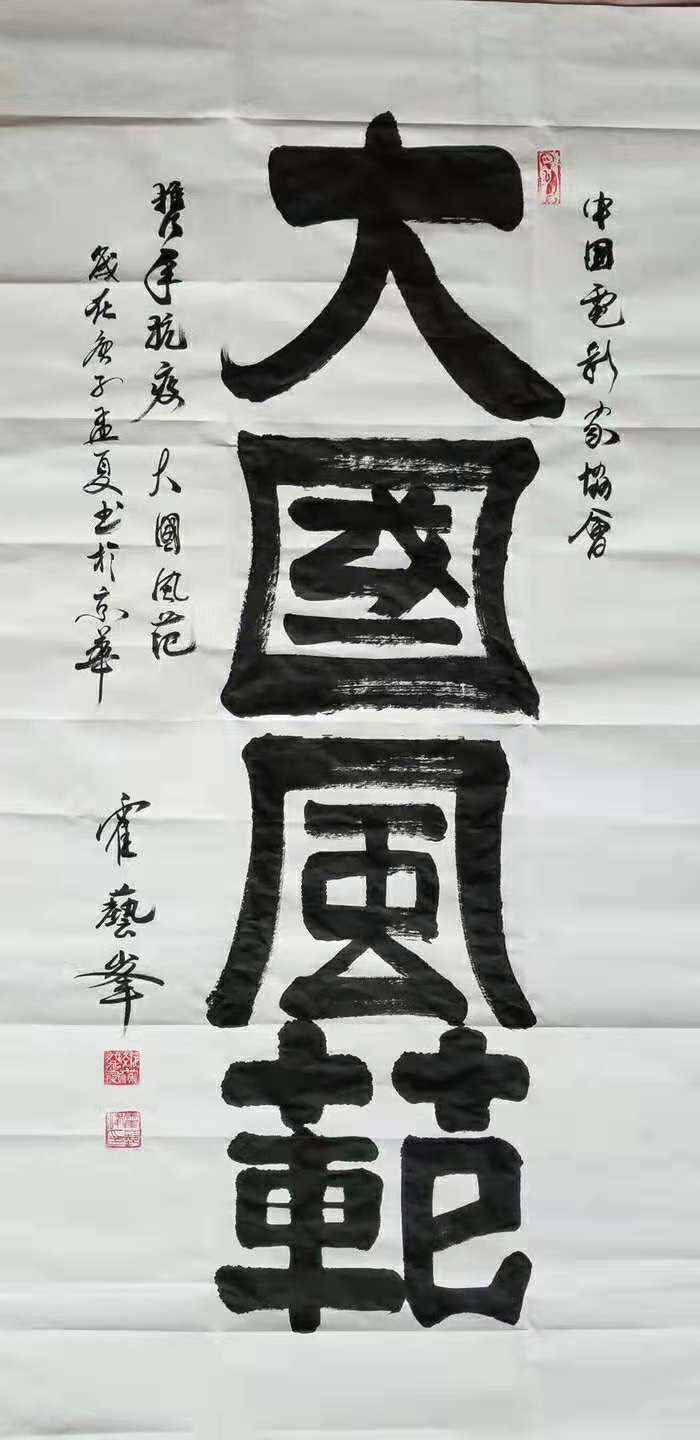 中國電影家協會
大國風範
携手抗疫 大國风范
歲在庚子孟夏书於京華
霍藝峯